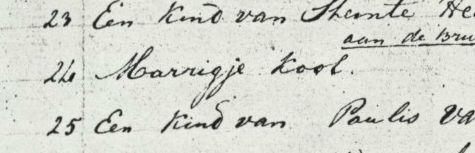 23 Een Kind van
aan de Bru
24 Marrigje Kool.
25 Een Kind van Paulis Va